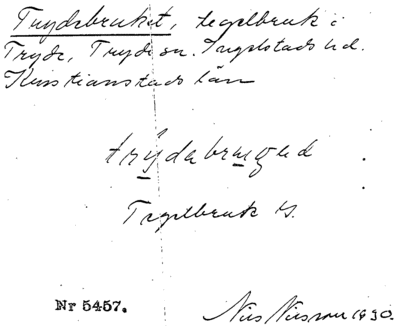 Trydebruket, tegelbruk i
Tryde, Tryde sn. Ingelstads hd.
Kristianstads län
trydabrug
Tegelbruk
Nr 5457.
Nils Nilsson 1930.